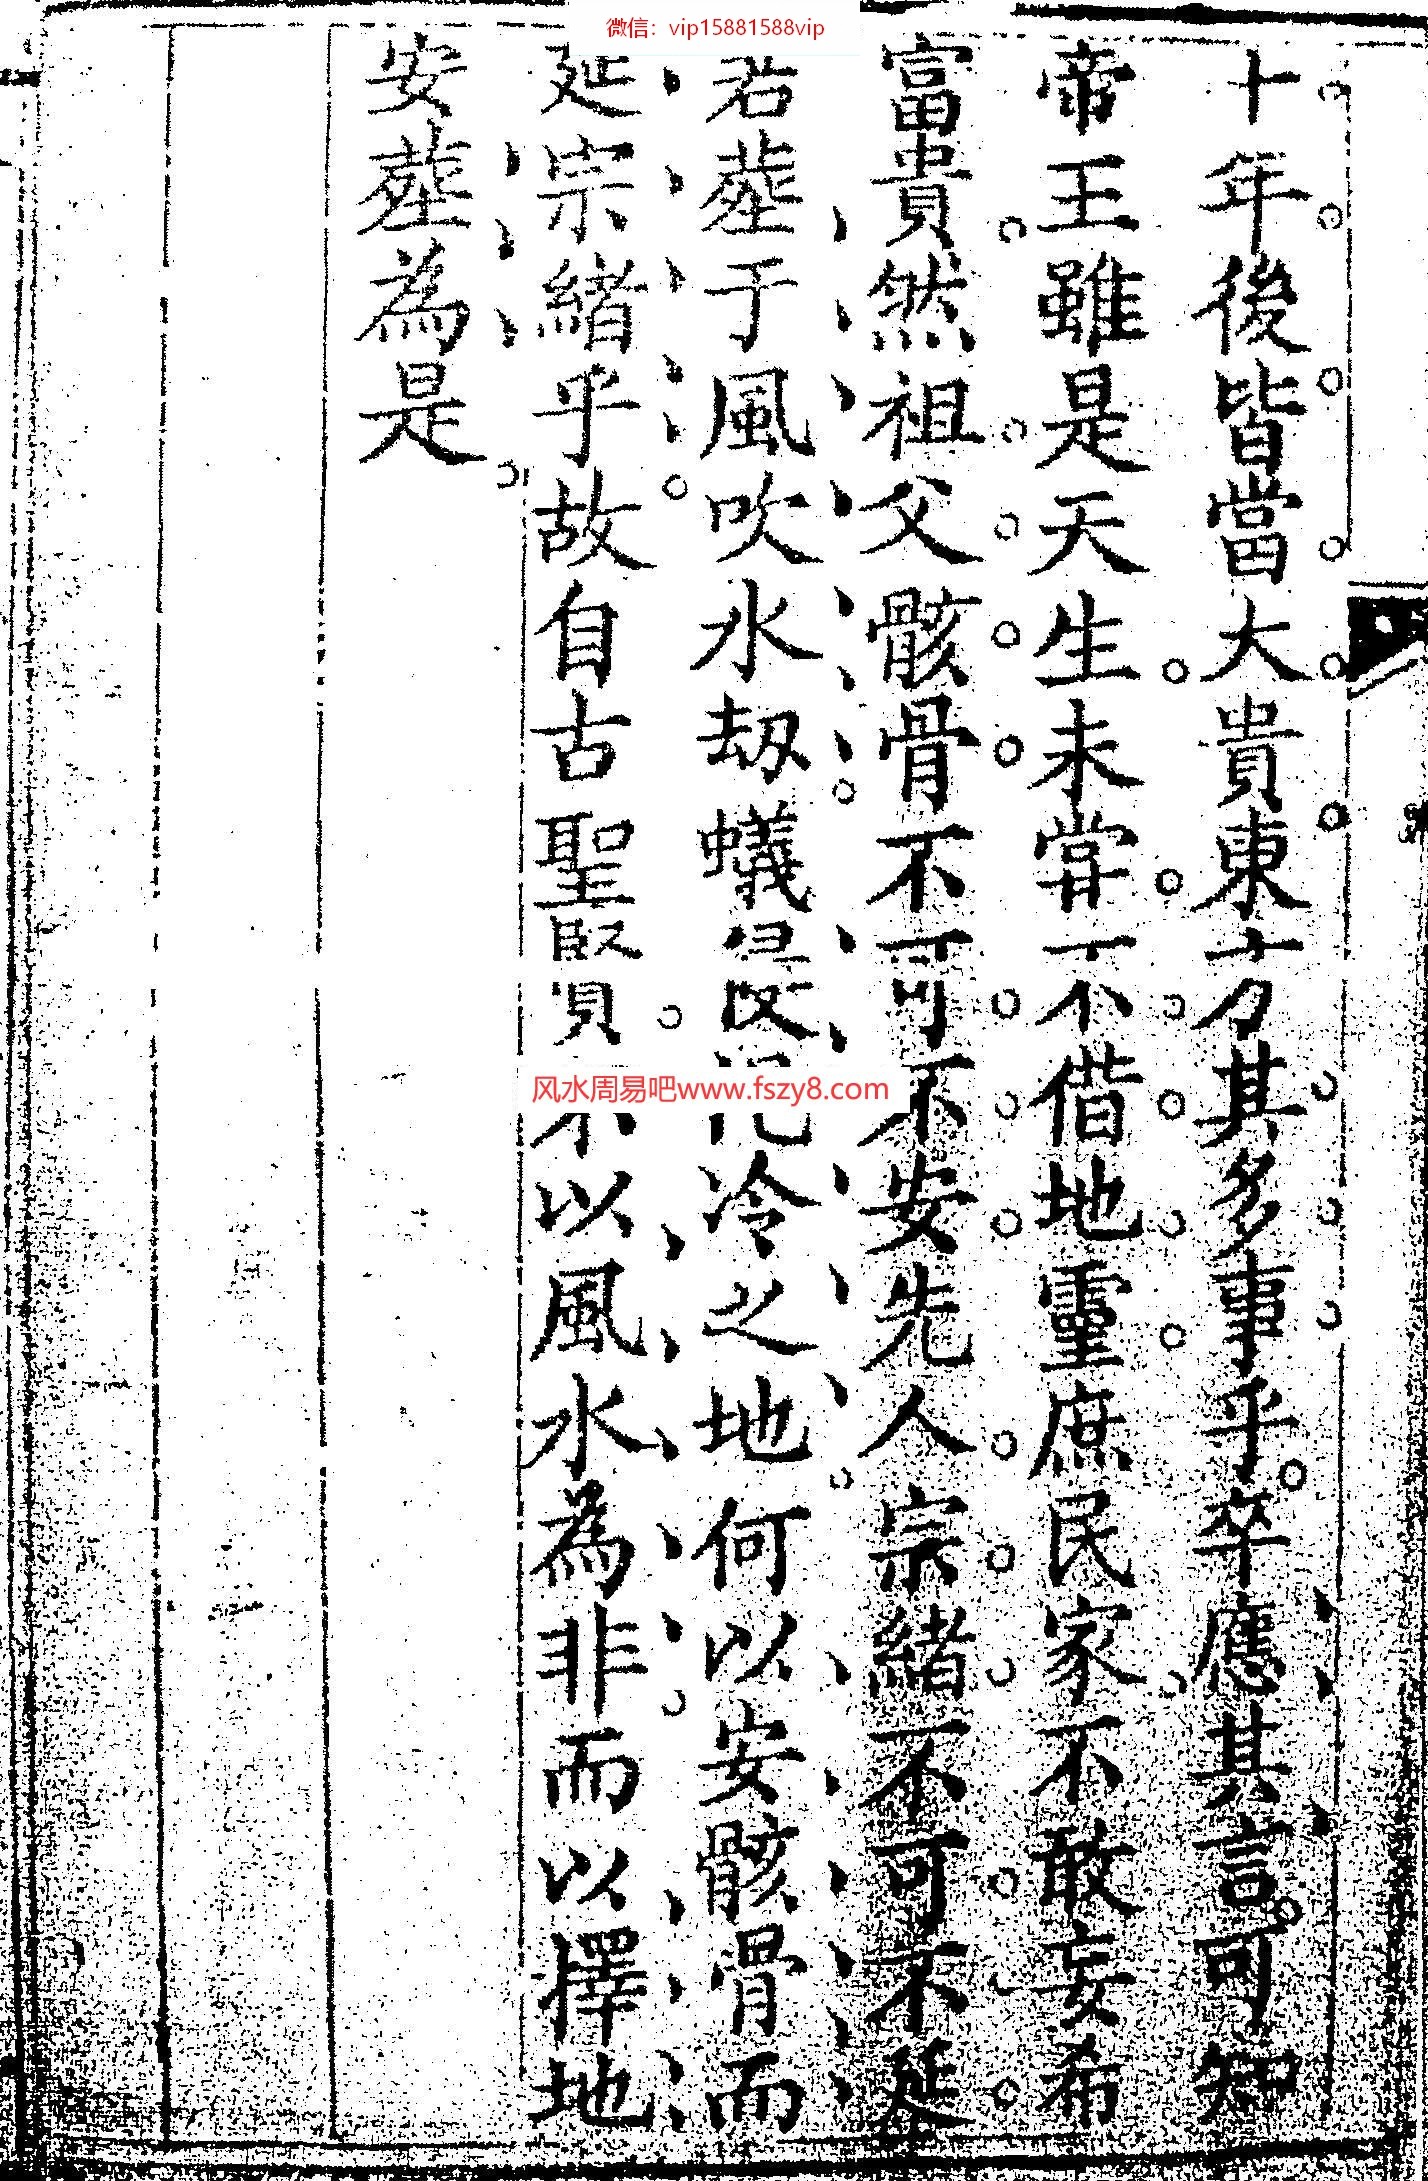 微信：vip15881588vip
十年後皆當大貴東方其多事乎卒應其言可知
帝王雖是天生未嘗不借地靈庶民家不敢妄希
富貴然祖父骸骨不可不安先人宗緒不可不延
若塟于風吹水刼蟻侵冷之地何以安骸骨而
延宗緒乎故自古聖賢不以風水為非而以擇地
安塟為是
风水周易吧www.fszy8.com